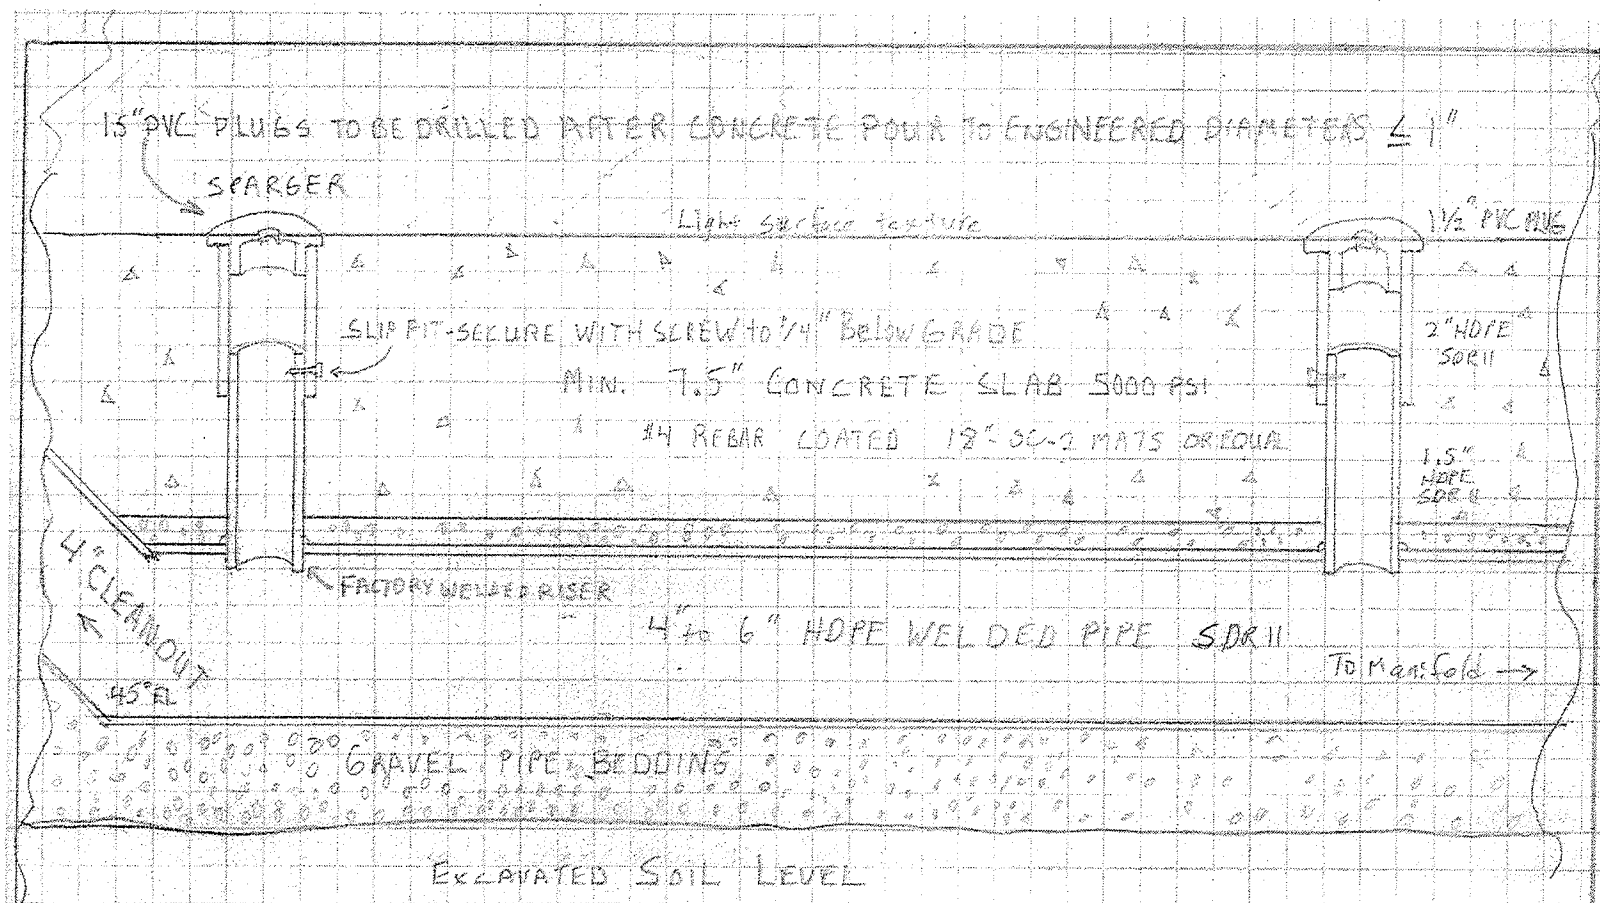 1.5" PVC PLUGS TO BE DRILLED AFTER CONCRETE POUR TO ENGINEERED DIAMETERS ≤ 1"
SPARGER
Light surface texture
1½" PVC PLUG
SLIP FIT-SECURE WITH SCREW to 1/4" Below GRADE
2" HDPE
SDR11
MIN. 7.5" CONCRETE SLAB 5000 PSI
#4 REBAR COATED 18"-OC-2 MATS OR EQUAL
1.5"
HDPE
SDR 11
4" CLEANOUT
FACTORY WELDED RISER
4" to 6" HDPE WELDED PIPE SDR 11
To Manifold →
45° EL
GRAVEL PIPE BEDDING
EXCAVATED SOIL LEVEL